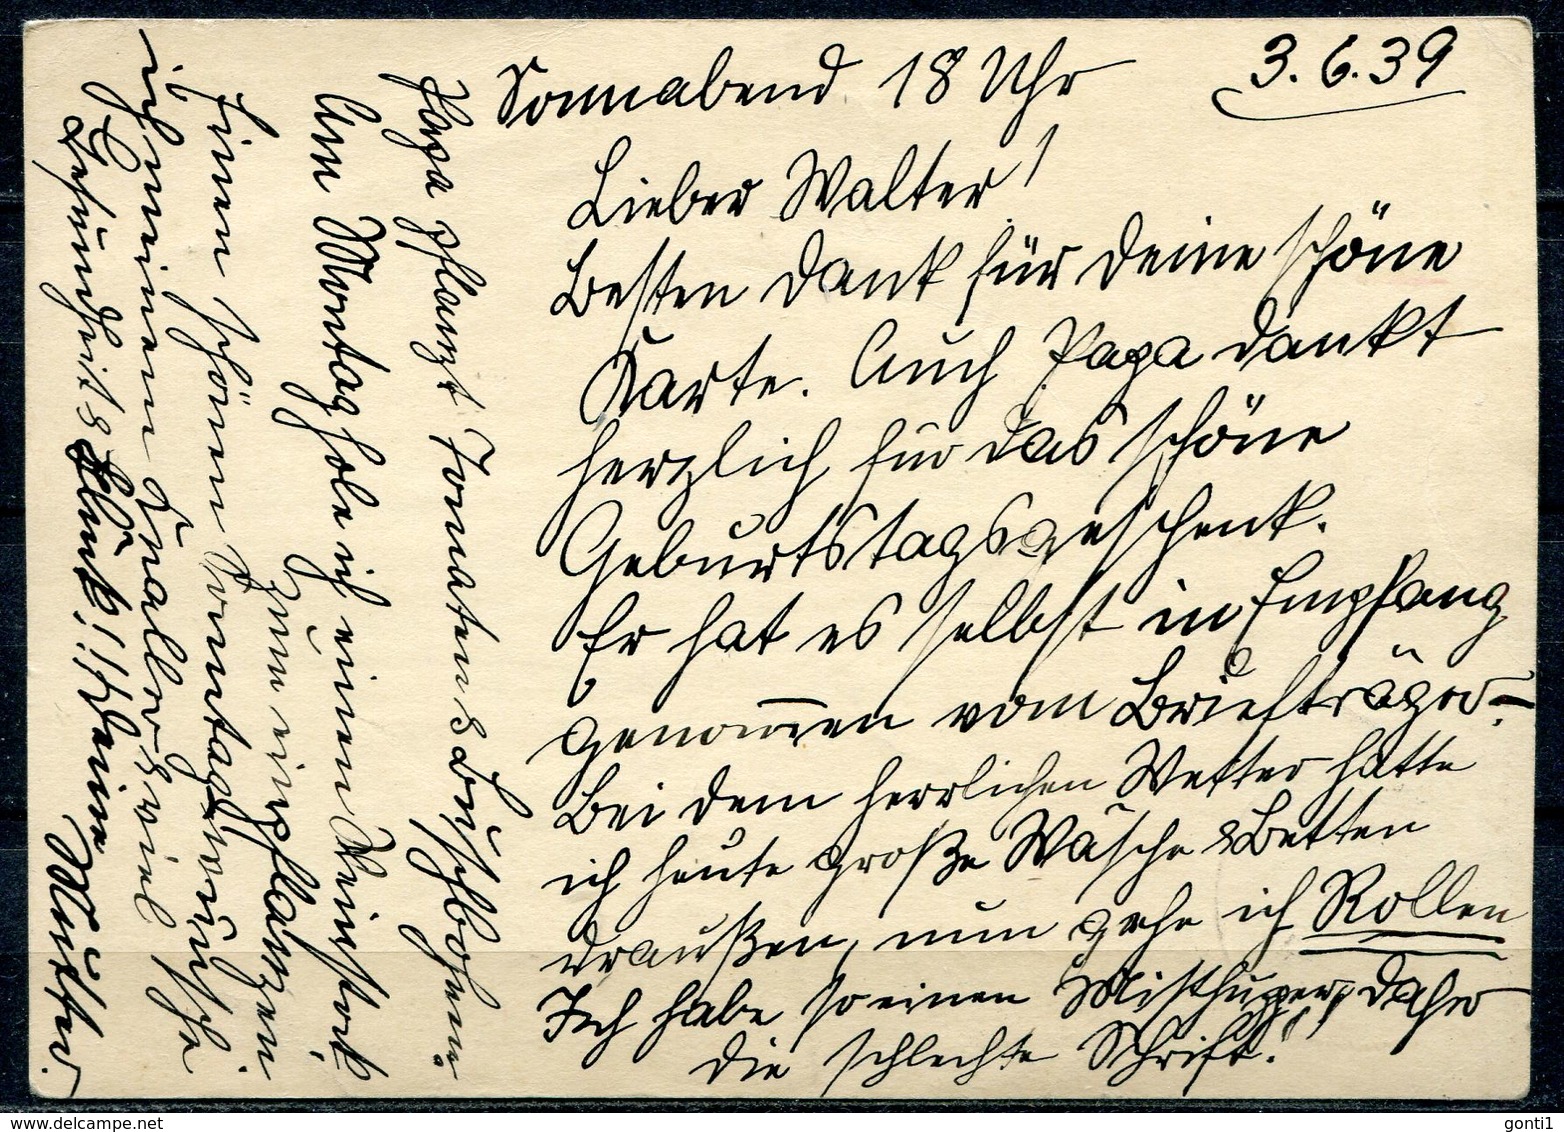 Sonnabend 18 Uhr
3.6.39
Lieber Walter!
Besten Dank für Deine schöne
Karte. Auch Papa dankt
herzlich für das schöne
Geburtstagsgeschenk.
Er hat es selbst in Empfang
genommen vom Briefträger. –
Bei dem herrlichen Wetter hatte
ich heute große Wäsche & Betten
draußen, nun gehe ich Rollen
Ich habe so einen daher
die schlechte Schrift.
Papa pflanzt Tomaten & Buschbohnen.
Am Montag hole ich einen Weinstock
zum einpflanzen.
Einen schönen Sonntag wünsche
ich meinem & viel
Gesundheit & Glück!!! Deine
Mutter.
gonti1